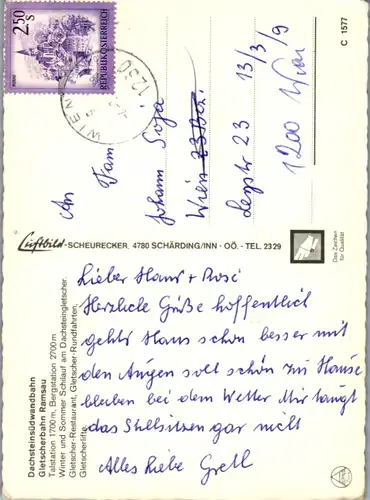 2.50 S
REPUBLIK ÖSTERREICH
WIEN
1230
An Fam
Johann Soja
Wien
23 13/3/9
1200 Wien
C 1577
Luftbild-SCHEURECKER, 4780 SCHÄRDING/INN - OÖ. - TEL. 2329
Das Zeichen
für Qualität
Dachsteinsüdwandbahn
Gletscherbahn Ramsau
Talstation 1700 m, Bergstation 2700 m
Winter und Sommer Schilauf am Dachsteingletscher.
Gletscher-Restaurant, Gletscher-Rundfahrten,
Gletscherlifte.
Lieber Hans + Rosi
Herzliche Grüße hoffentlich
gehts Hans schon besser mit
den Augen soll schön zu Hause
bleiben bei dem Wetter Mir taugt
das Stillsitzen gar nicht
Alles Liebe Gretl